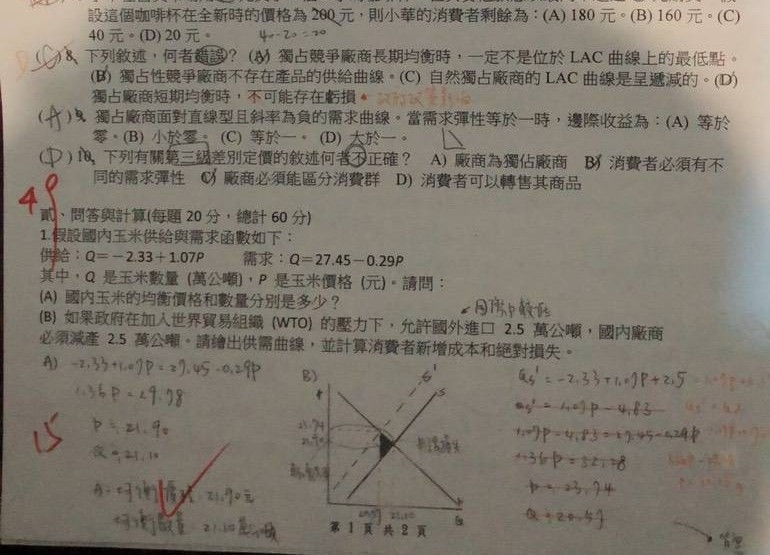 設這個咖啡杯在全新時的價格為 200 元，則小華的消費者剩餘為：(A) 180 元。(B) 160 元。(C)
40 元。(D) 20 元。 40-20=20
8. 下列敘述，何者錯誤？(A) 獨占競爭廠商長期均衡時，一定不是位於 LAC 曲線上的最低點。
(B) 獨占性競爭廠商不存在產品的供給曲線。(C) 自然獨占廠商的 LAC 曲線是呈遞減的。(D)
獨占廠商短期均衡時，不可能存在虧損。
(A) 9. 獨占廠商面對直線型且斜率為負的需求曲線。當需求彈性等於一時，邊際收益為：(A) 等於
零。(B) 小於零。(C) 等於一。 (D) 大於一。
(D) 10. 下列有關第三級差別定價的敘述何者不正確？ A) 廠商為獨佔廠商 B) 消費者必須有不
同的需求彈性 C) 廠商必須能區分消費群 D) 消費者可以轉售其商品
49
貳、問答與計算(每題 20 分，總計 60 分)
1.假設國內玉米供給與需求函數如下：
供給：Q＝－2.33＋1.07P 需求：Q＝27.45－0.29P
其中，Q 是玉米數量 (萬公噸)，P 是玉米價格 (元)。請問：
(A) 國內玉米的均衡價格和數量分別是多少？
(B) 如果政府在加入世界貿易組織 (WTO) 的壓力下，允許國外進口 2.5 萬公噸，國內廠商
必須減產 2.5 萬公噸。請繪出供需曲線，並計算消費者新增成本和絕對損失。
A) -2.33+1.07P=27.45-0.29P
1.36P=29.78
P=21.90
Q=21.10
15
B)
S'
S
Q
Qs'=-2.33+1.07P+2.5
1.07P-4.83=27.45-0.29P
1.36P=32.28
P=23.74
Q=20.57
第 1 頁 共 2 頁